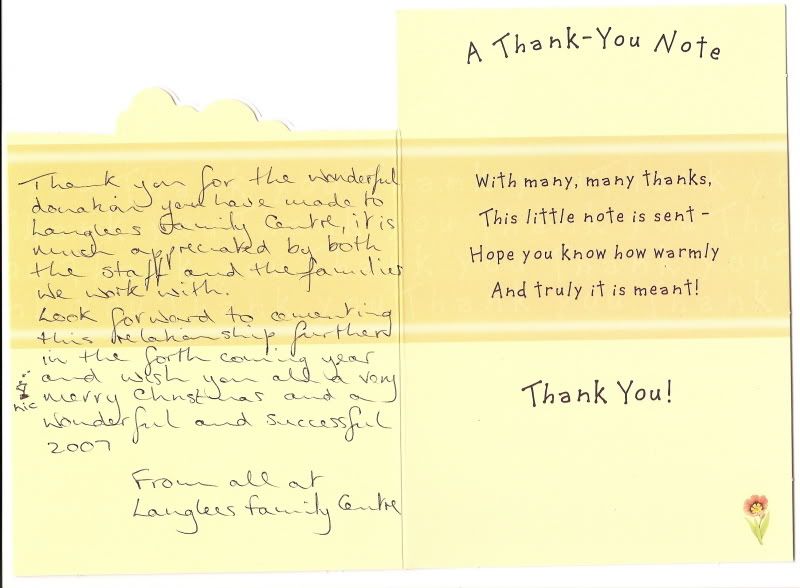 Thank you for the wonderful
donation you have made to
Langlees Family Centre, it is
much appreciated by both
the staff and the families
we work with.
Look forward to cementing
this relationship further
in the forth coming year
and wish you all a very
merry Christmas and a
wonderful and successful
2007
From all at
Langlees Family Centre
hic
A Thank-You Note
With many, many thanks,
This little note is sent -
Hope you know how warmly
And truly it is meant!
Thank You!